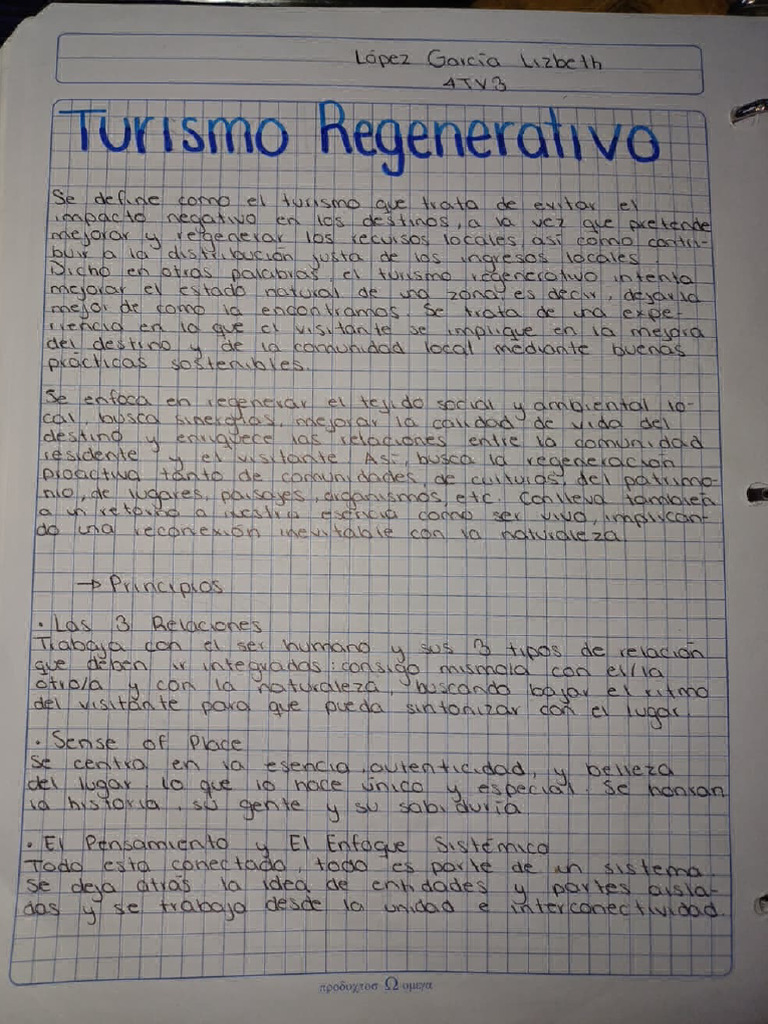 López García Lizbeth
4TV3
Turismo Regenerativo
Se define como el turismo que trata de evitar el
impacto negativo en los destinos, a la vez que pretende
mejorar y regenerar los recursos locales, así como contri-
buir a la distribución justa de los ingresos locales
Dicho en otras palabras el turismo regenerativo intenta
mejorar el estado natural de una zona, es decir, dejarla
mejor de como la encontramos. Se trata de una expe-
riencia en la que el visitante se implique en la mejora
del destino y de la comunidad local mediante buenas
prácticas sostenibles.
Se enfoca en regenerar el tejido social y ambiental lo-
cal, busca sinergias, mejorar la calidad de vida del
destino y enriquece las relaciones entre la comunidad
residente y el visitante. Así, busca la regeneración
proactiva tanto de comunidades, de culturas, del patrimo-
nio, de lugares, paisajes, organismos, etc. Conlleva también
a un retorno a nuestra esencia como ser vivo, implican-
do una reconexión inevitable con la naturaleza
→ Principios
· Las 3 Relaciones
Trabaja con el ser humano y sus 3 tipos de relación
que deben ir integradas: consigo mismo/a con el/la
otro/a y con la naturaleza, buscando bajar el ritmo
del visitante para que pueda sintonizar con el lugar.
· Sense of Place
Se centra en la esencia, autenticidad, y belleza
del lugar, lo que lo hace único y especial. Se honran
la historia, su gente y su sabiduría
· El Pensamiento y El Enfoque Sistémico
Todo esta conectado, todo es parte de un sistema.
Se deja atrás la idea de entidades y partes aisla-
das y se trabaja desde la unidad e interconectividad.
προδυχτοσ Ω ομεγα